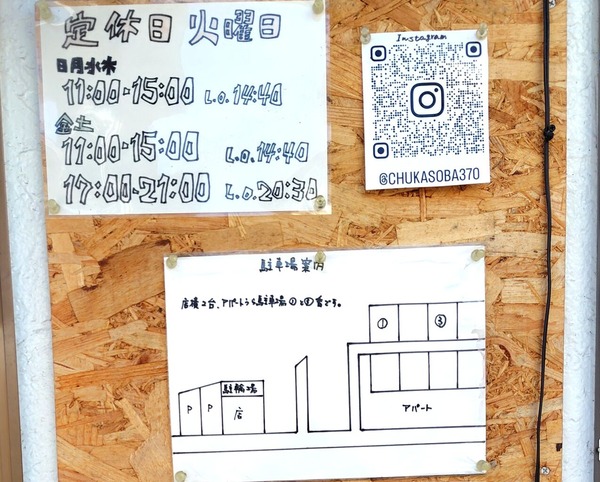 定休日 火曜日
日月水木
11:00-15:00 L.O.14:40
金土
11:00-15:00 L.O.14:40
17:00-21:00 L.O.20:30
Instagram
@CHUKASOBA370
駐車場案内
店横2台、アパートうら駐車場①と③番です。
① ③
駐輪場
P P 店
アパート